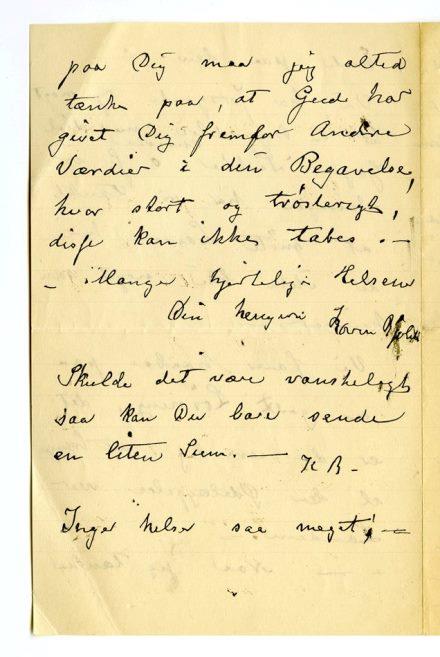 paa Dig maa jeg altid
tænke paa, at Gud har
givet Dig fremfor Andre
Værdier i din Begavelse,
hvor stort og trøsterigt,
disse kan ikke tabes. –
– Mange hjertelige Hilsener
Din hengivne Karen
Skulde det være vanskeligt
saa kan Du bare sende
en liten Sum. — K B –
Inger hilser saa meget! —